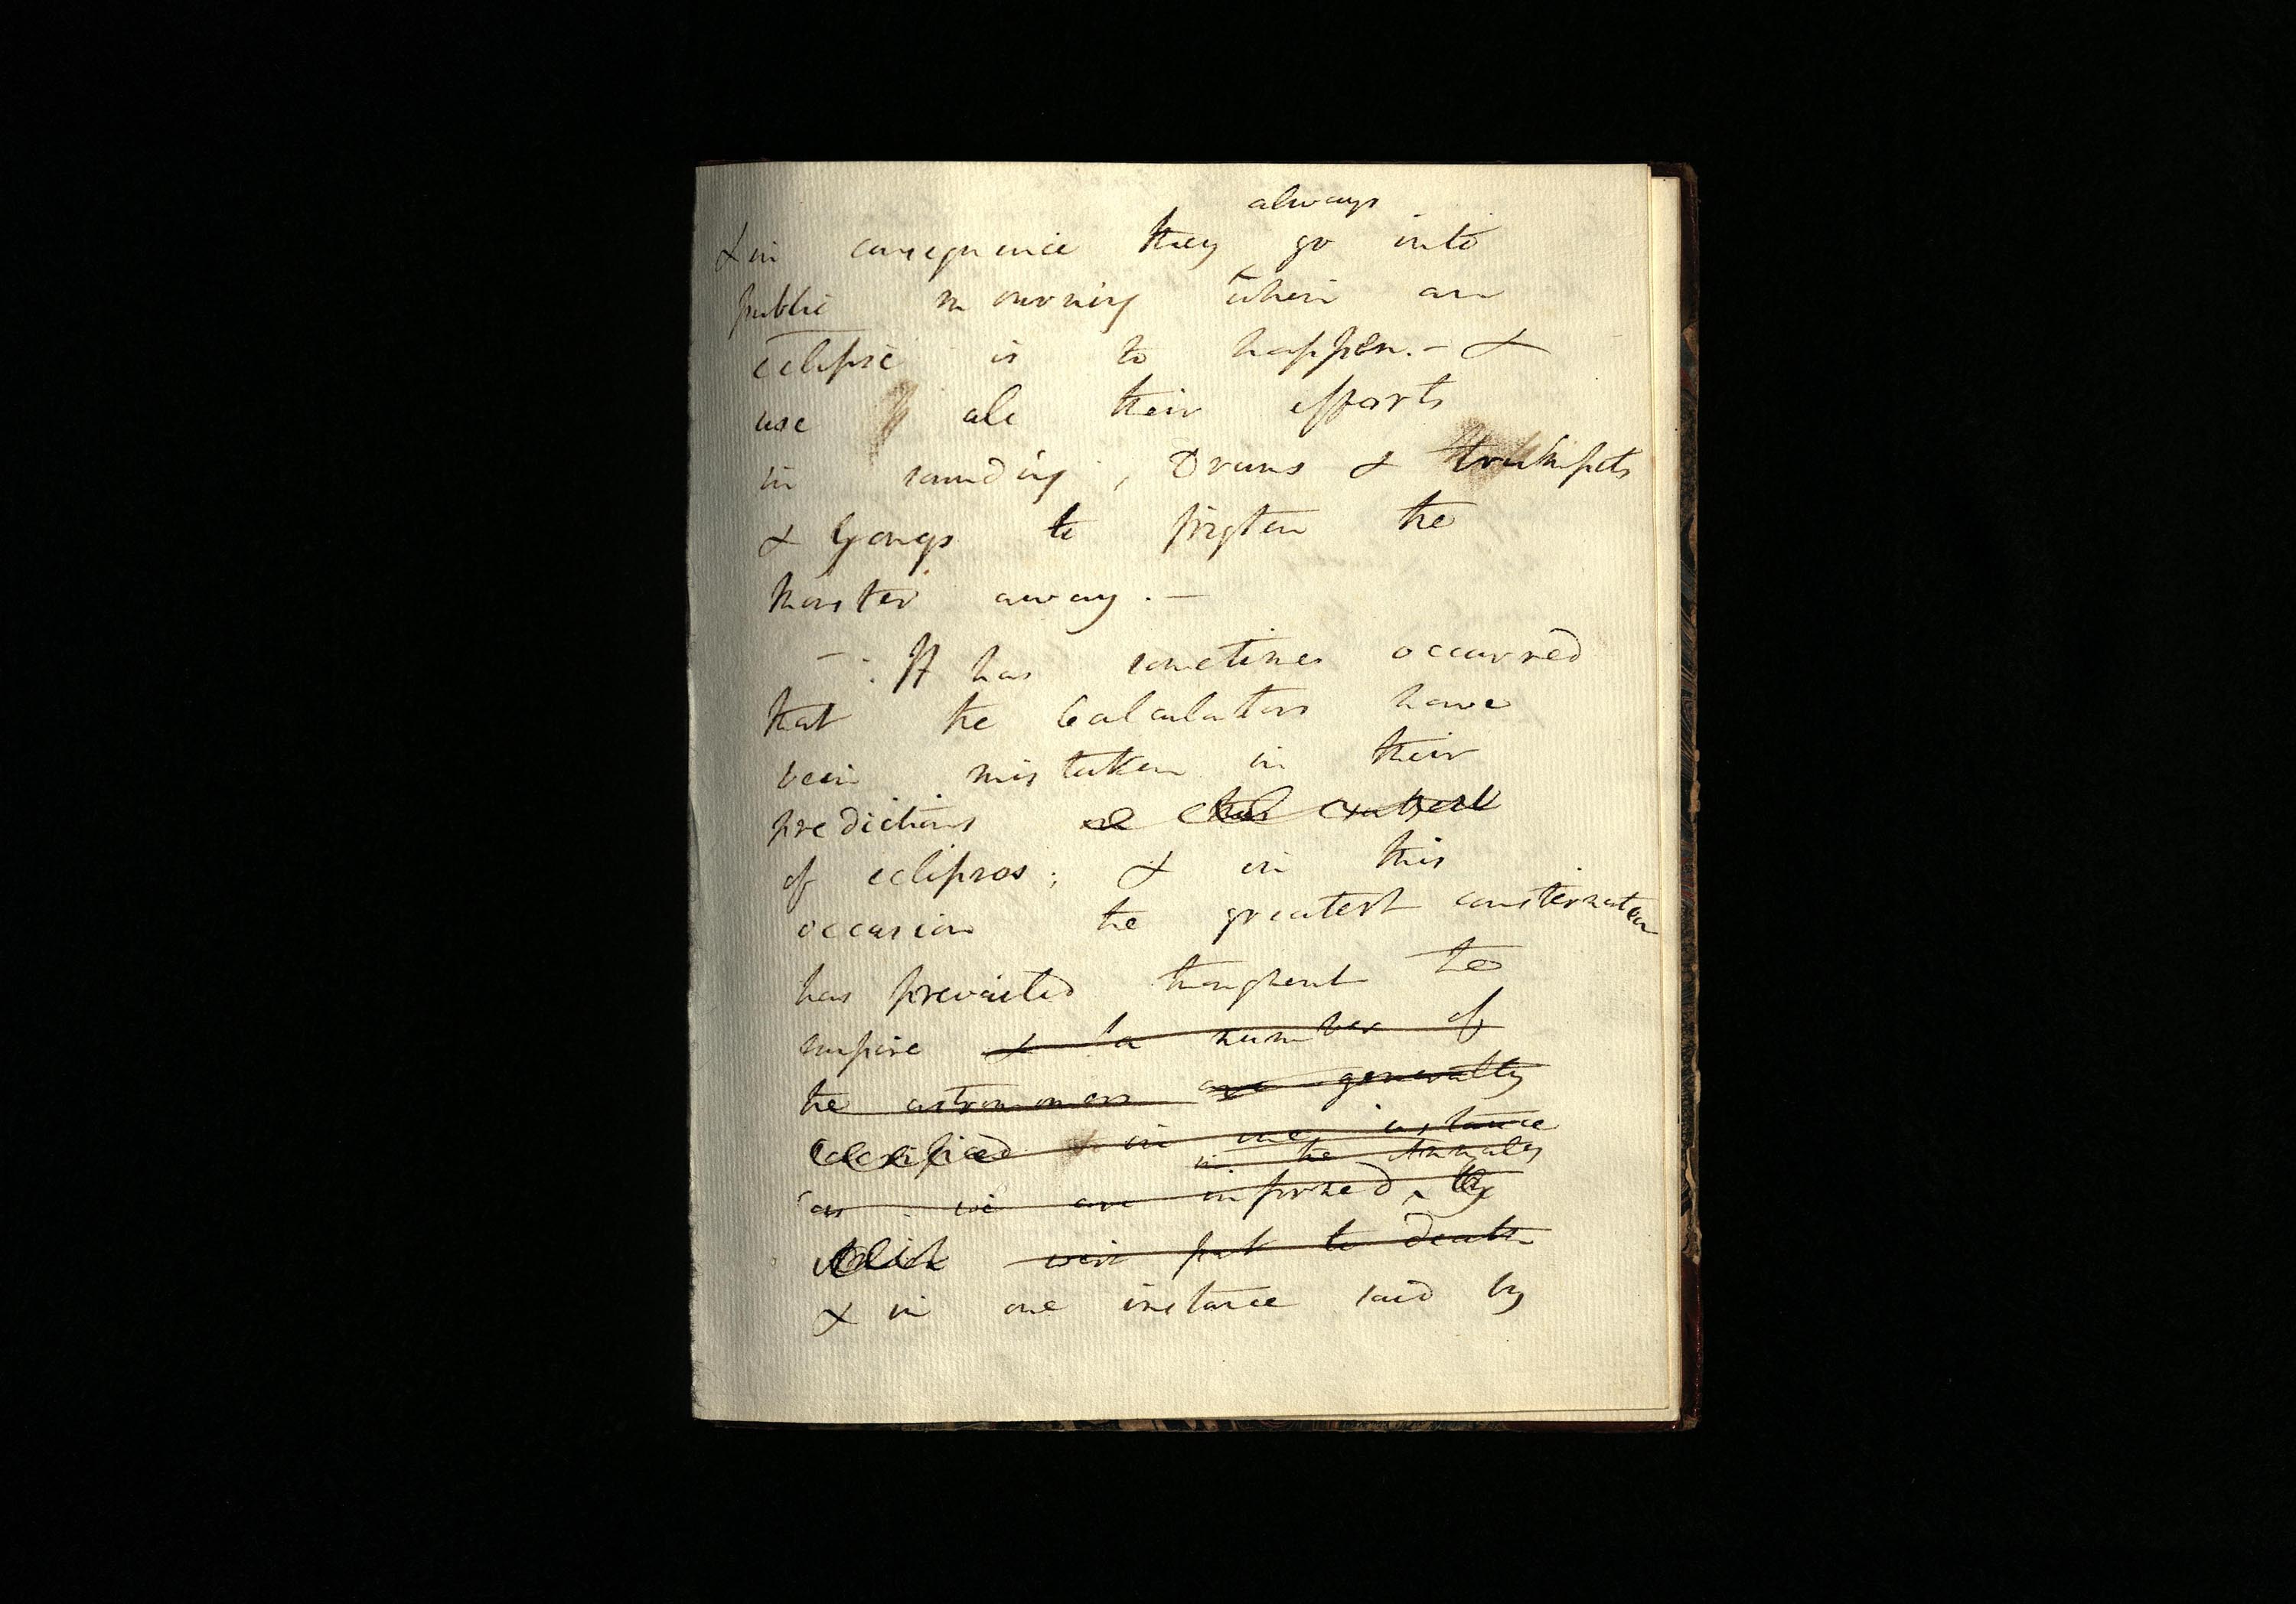 always
& in consequence they go into
public mourning when an
eclipse is to happen. - &
use all their efforts
in sounding, Drums & trumpets
& Gongs to frigten the
Monster away. -
- : It has sometimes occurred
that the Calculators have
been mistaken in their
predictions
of eclipses; & in this
occasion the greatest consternation
has prevailed thoughout the
empire & a number of
the astronomers are generally
& in one instance
in the Annales
as we are informed, by
were put to death
& in one instance said by